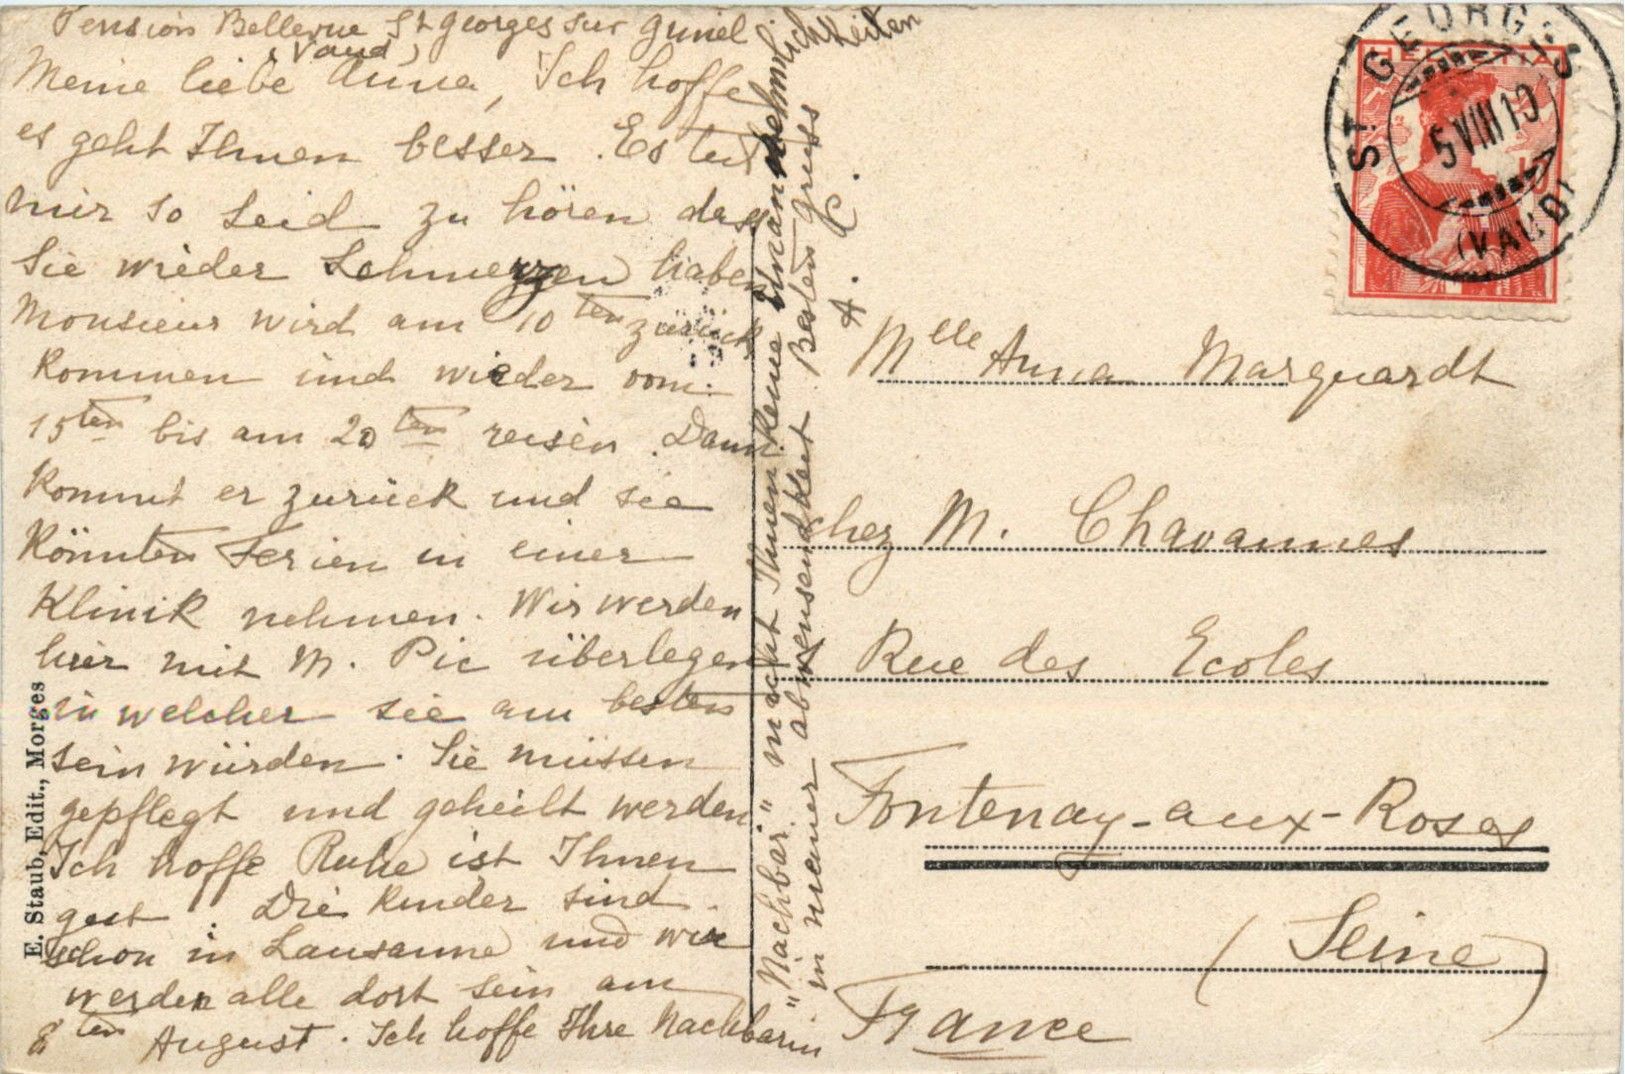 Pension Bellevue St Georges sur Gimel
(Vaud)
Meine liebe Anna, Ich hoffe
es geht Ihnen besser. Es tut
mir so Leid zu hören dass
Sie wieder Schmerzen haben
Monsieur wird am 10ten zurück
kommen und wieder vom
15ten bis am 20ten reisen. Dann
kommt er zurück und sie
könnten Ferien in einer
Klinik nehmen. Wir werden
hier mit M. Pic überlegen
in welcher sie am besten
sein würden. Sie müssen
gepflegt und geheilt werden
Ich hoffe Ruhe ist Ihnen
gut. Die Kinder sind
schon in Lausanne und wir
werden alle dort sein am
8ten August. Ich hoffe Ihre Nachbarin
"Nachbar" macht Ihnen keine Unannehmlichkeiten
in meiner abwensendkeit Besten gruss
A. C.
E. Staub, Edit., Morges
ST. GEORGES
5 VIII 10
(VAUD)
HELVETIA
10
Mlle Anna Marquardt
chez M. Chavannes
Rue des Ecoles
Fontenay-aux-Roses
(Seine)
France